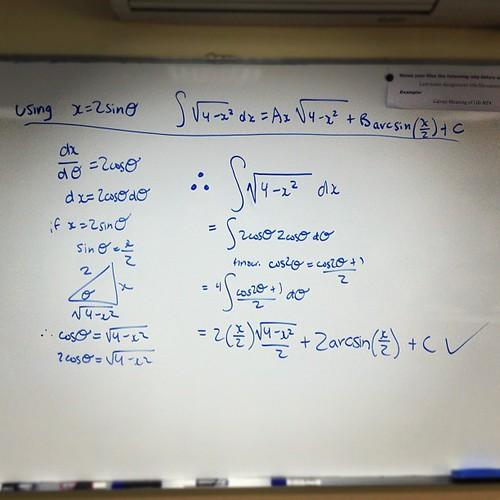 Using x=2sinθ ∫√4-x² dx = Ax√4-x² + Barcsin(x/2)+C
dx/dθ = 2cosθ
dx=2cosθdθ
if x=2sinθ
sinθ=x/2
2
x
θ
√4-x²
∴ cosθ=√4-x²
2cosθ=√4-x²
∴ ∫√4-x² dx
= ∫2cosθ 2cosθ dθ
know. cos²θ = cos2θ+1/2
= 4∫cos2θ+1/2 dθ
= 2(x/2)√4-x²/2 + 2arcsin(x/2) + C ✓
Name your files the following way before
Example: